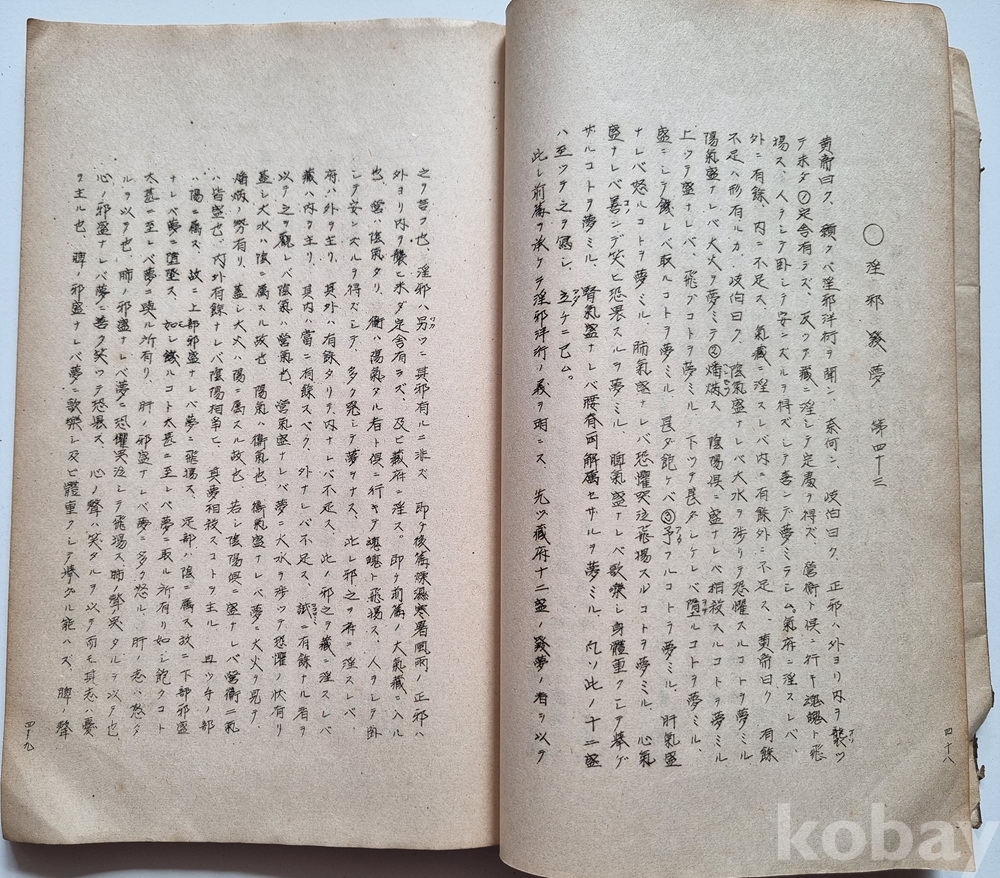 〇淫邪發夢 第四十三
黃帝曰ク、願クバ淫邪泮衍ヲ聞ン、奈何ン 岐伯曰ク、正邪ハ外ヨリ内ヲ襲ツ
テ未ダ①定舍有ラズ、反ツテ藏ニ淫シテ定處ヲ得ズ、營衞ト倶ニ行キ魂魄ト飛
揚ス、人ヲシテ臥シテ安ンズルヲ得ズシテ喜ンデ夢ミラシム、氣府ニ淫スレバ、
外ニ有餘、内ニ不足ス、氣藏ニ淫スレバ内ニ有餘外ニ不足ス、黃帝曰ク 有餘
不足ハ形有ルカ、岐伯曰ク、陰氣盛ナレバ大水ヲ渉リテ恐懼スルコトヲ夢ミル
陽氣盛ナレバ大火ヲ夢ミテ②燔焫ス 陰陽倶ニ盛ナレバ相殺スルコトヲ夢ミル
上ツヲ盛ナレバ、飛ブコトヲ夢ミル 下ツヲ盛ンナレバ墮ルコトヲ夢ミル、
盛ニシテ饑レバ取ルコトヲ夢ミル 甚ダ飽ケバ③予フルコトヲ夢ミル、肝氣盛
ナレバ怒ルコトヲ夢ミル、肺氣盛ナレバ恐懼哭泣飛揚スルコトヲ夢ミル、心氣
盛ナレバ善ンデ笑ヒ恐畏スルヲ夢ミル、脾氣盛ナレバ歌樂シ身體重クシテ擧ゲ
ザルコトヲ夢ミル、腎氣盛ナレバ腰脊両解屬セサルヲ夢ミル、凡ソ此ノ十二盛
ハ至ツテ之ヲ寫シ、立ケニ已ム。
此レ前篇ヲ承ケテ淫邪泮衍ノ義ヲ明ニス、先ヅ藏府十二盛ノ發夢ノ者ヲ以テ
四十八
之ヲ言フ也、淫邪ハ另ツニ其邪有ルニ非ズ 即チ後篇燥濕寒暑風雨ノ正邪ハ
外ヨリ内ヲ襲ヒ未ダ定舍有ラズ、及ビ藏府ニ淫ス。即チ前篇ノ大氣藏ニ入ル
也、營ハ陰氣タリ、衞ハ陽氣タル者ト倶ニ行キテ魂魄ト飛揚ス、人ヲシテ臥
シテ安ンズルヲ得ズシテ、多ク発シテ夢ヲナス、此レ邪之ヲ府ニ淫スレバ、
府ハ外ヲ主リ、其外ハ有餘タリテ、内ナレバ不足ス、此ノ邪之ヲ藏ニ淫スレバ
藏ハ内ヲ主リ、其内ハ當ニ有餘スベク、外ナレバ不足ス、誠ニ有餘ナル者ヲ
以テ之ヲ觀レバ陰氣ハ營氣也、營氣盛ナレバ夢ニ大水ヲ渉ツテ恐懼ノ状有リ
蓋シ大水ハ陰ニ属スル故也 陽氣ハ衞氣也 衞氣盛ナレバ夢ニ大火ヲ見テ、
燔焫ノ勢有リ、蓋シ大火ハ陽ニ属スル故也 若シ陰陽倶ニ盛ナレバ營衞二氣
ハ皆盛也、内外有餘ナレバ陰陽相爭ヒ、其夢相殺スコトヲ主ル 且ツ手ノ部
ハ陽ニ属ス、故ニ上部邪盛ナレバ夢ニ飛揚ス、足部ハ陰ニ属ス故ニ下部邪盛
ナレバ夢ニ墮墜ス、如シ饑ルコト太甚ニ至レバ夢ニ取ル所有リ如シ飽クコト
太甚ニ至レバ夢ニ與ル所有リ、肝ノ邪盛ナレバ夢ニ多ク怒ル、肝ノ志ハ怒タ
ルヲ以テ也、肺ノ邪盛ナレバ夢ニ恐懼哭泣シテ飛揚ス肺ノ聲ハ哭タルヲ以テ也
心ノ邪盛ナレバ夢ニ善ク笑ツテ恐畏ス、心ノ聲ハ笑タルヲ以テ而モ其志ハ憂
ヲ主ル也、脾ノ邪盛ナレバ夢ニ歌樂シ及ビ體重クシテ擧グル能ハズ、脾ノ聲
四十九
kobay